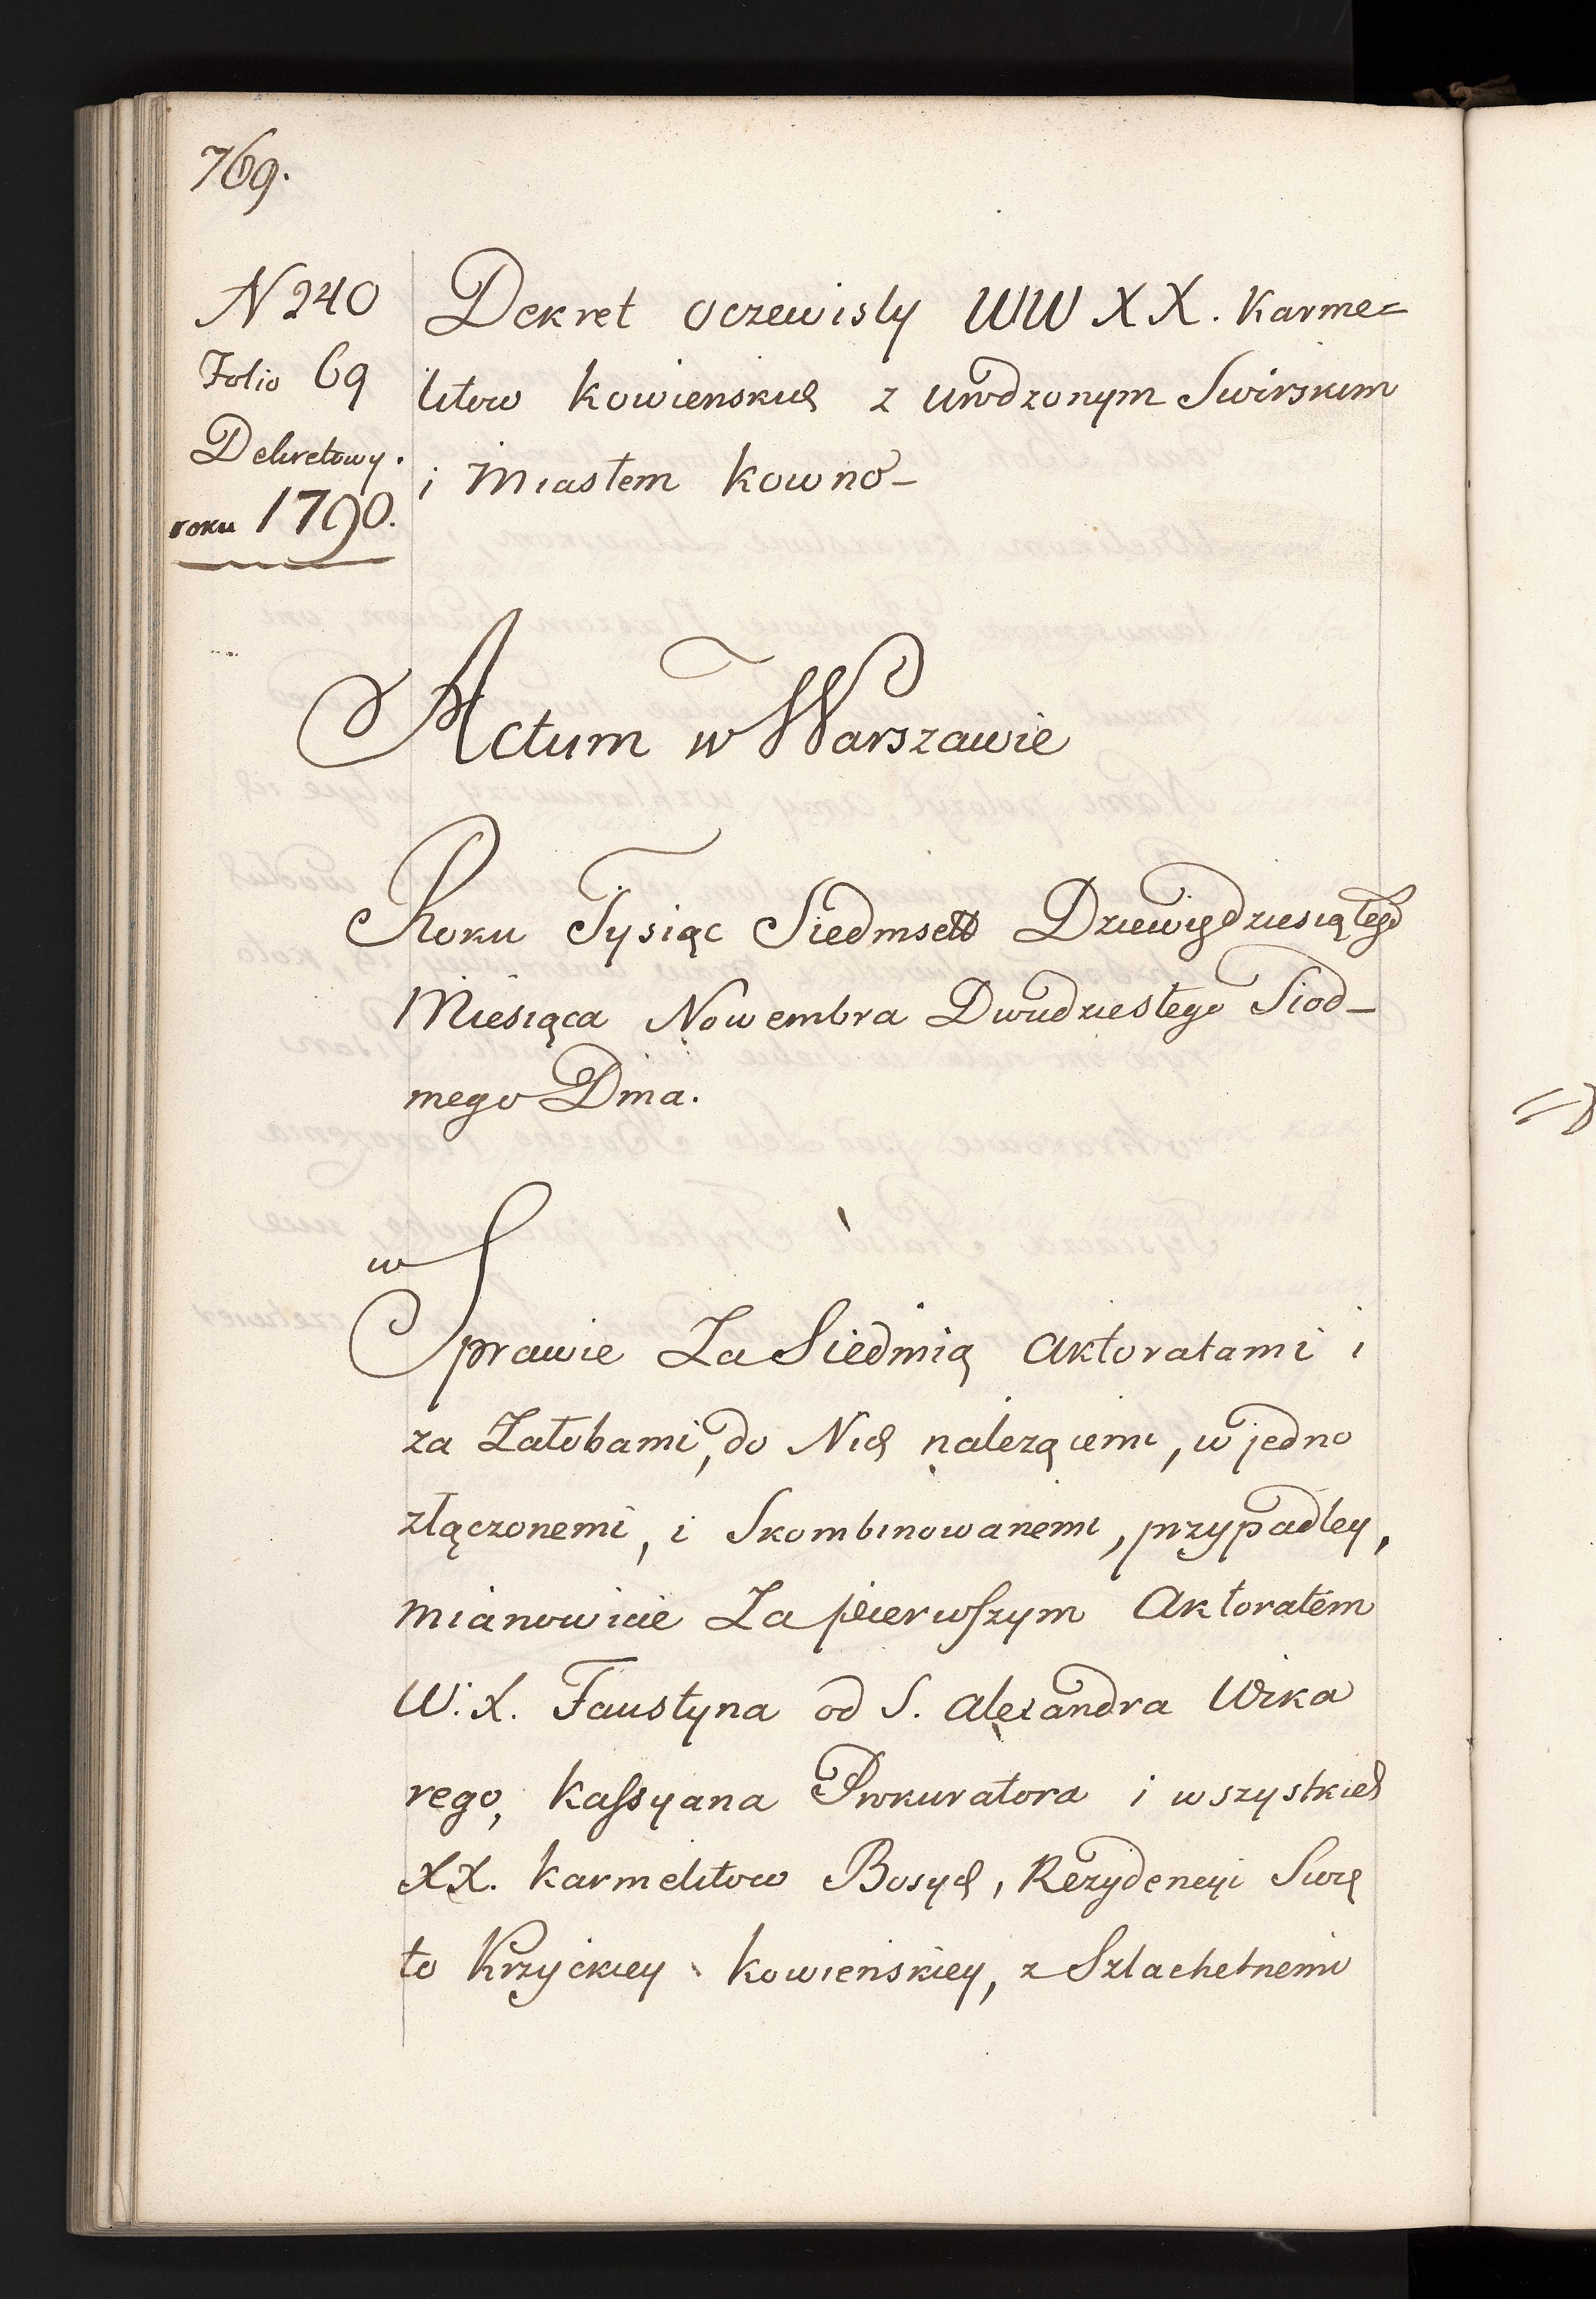 769.
N 240
Folio 69
Dekretowy.
roku 1790.
Dekret oczewisty WW XX. Karme=
litow Kowienskich z urodzonym Swirskim
i Miastem Kowno_
Actum w Warszawie
Roku Tysiąc Siedmset Dziewiędziesiątego
Miesiąca Nowembra Dwudziestego Siod_
mego Dnia.
w
Sprawie Za Siedmią Aktoratami i
za Załobami, do Nich nalezącemi, w jedno
złączonemi, i Skombinowanemi, przypadłey,
mianowicie Za pierwſzym Aktoratem
W. X. Faustyna od S. Alexandra Wika
rego, Kaſsyana Prokuratora i wszystkich
XX. Karmelitow Bosych, Rezydencyi Swię
to Krzyckiey Kowieńskiey, z Szlachetnemi